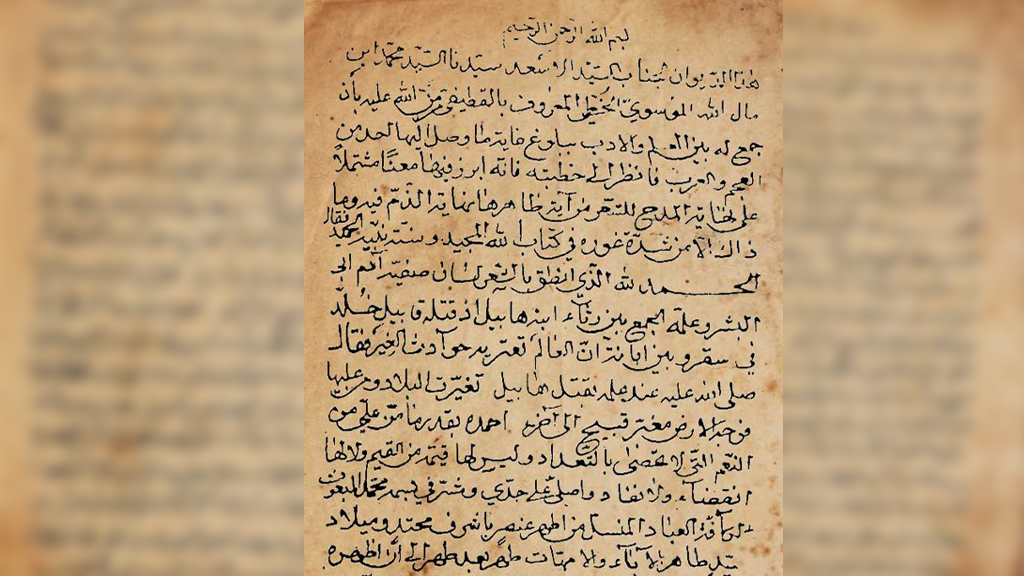 بسم الله الرحمن الرحيم
هذا الديوان لجناب السيد الاسعد سيدنا السيد محمد ابن
مال الله الموسوي الخطي المعروف بالقطيفي من الله عليه بأن
جمع له بين العلم والادب ببلوغ غاية ما وصل اليها احد من
العجم والعرب فانظر الى خطبته فانه ابرز فيها معنا مشتملا
على غاية المدح للشعر من آية ظاهرها نهاية الذم فيه وما
ذاك الا من شدة غوره في كتاب الله المجيد وسنة نبيه الحميد فقال
الحمد لله الذي انطق بالشعر لسان صفيه آدم ابي
البشر وعلمه الجمع بين رثاء ابنه هابيل اذ قتله قابيل فخلد
في سقر وبين ابانة ان العالم تعتريه حوادث الغير فقال
صلى الله عليه عند علمه بقتل هابيل تغيرت البلاد ومن عليها
فوجه الارض مغبر قبيح الى آخره احمده بقدر ما من علي من
النعم التي لا تحصى بالتعداد وليس لها قيمة من القيم ولا لها
انقضاء ولا نفاد واصلي على جدي وشرفي محمد المبعوث
الى كافة العباد المنسل من اطهر عنصر باشرف محتد وميلاد
طاهر الآباء والامهات طهر بعد طهر الى ان اظهره